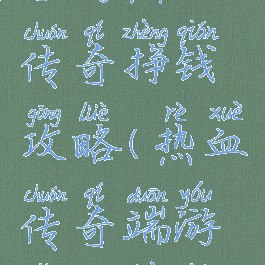 chuán qí zhèng qián
传奇挣钱
gōng lüè rè xuè
攻略(热血
chuán qí duān yóu
传奇端游